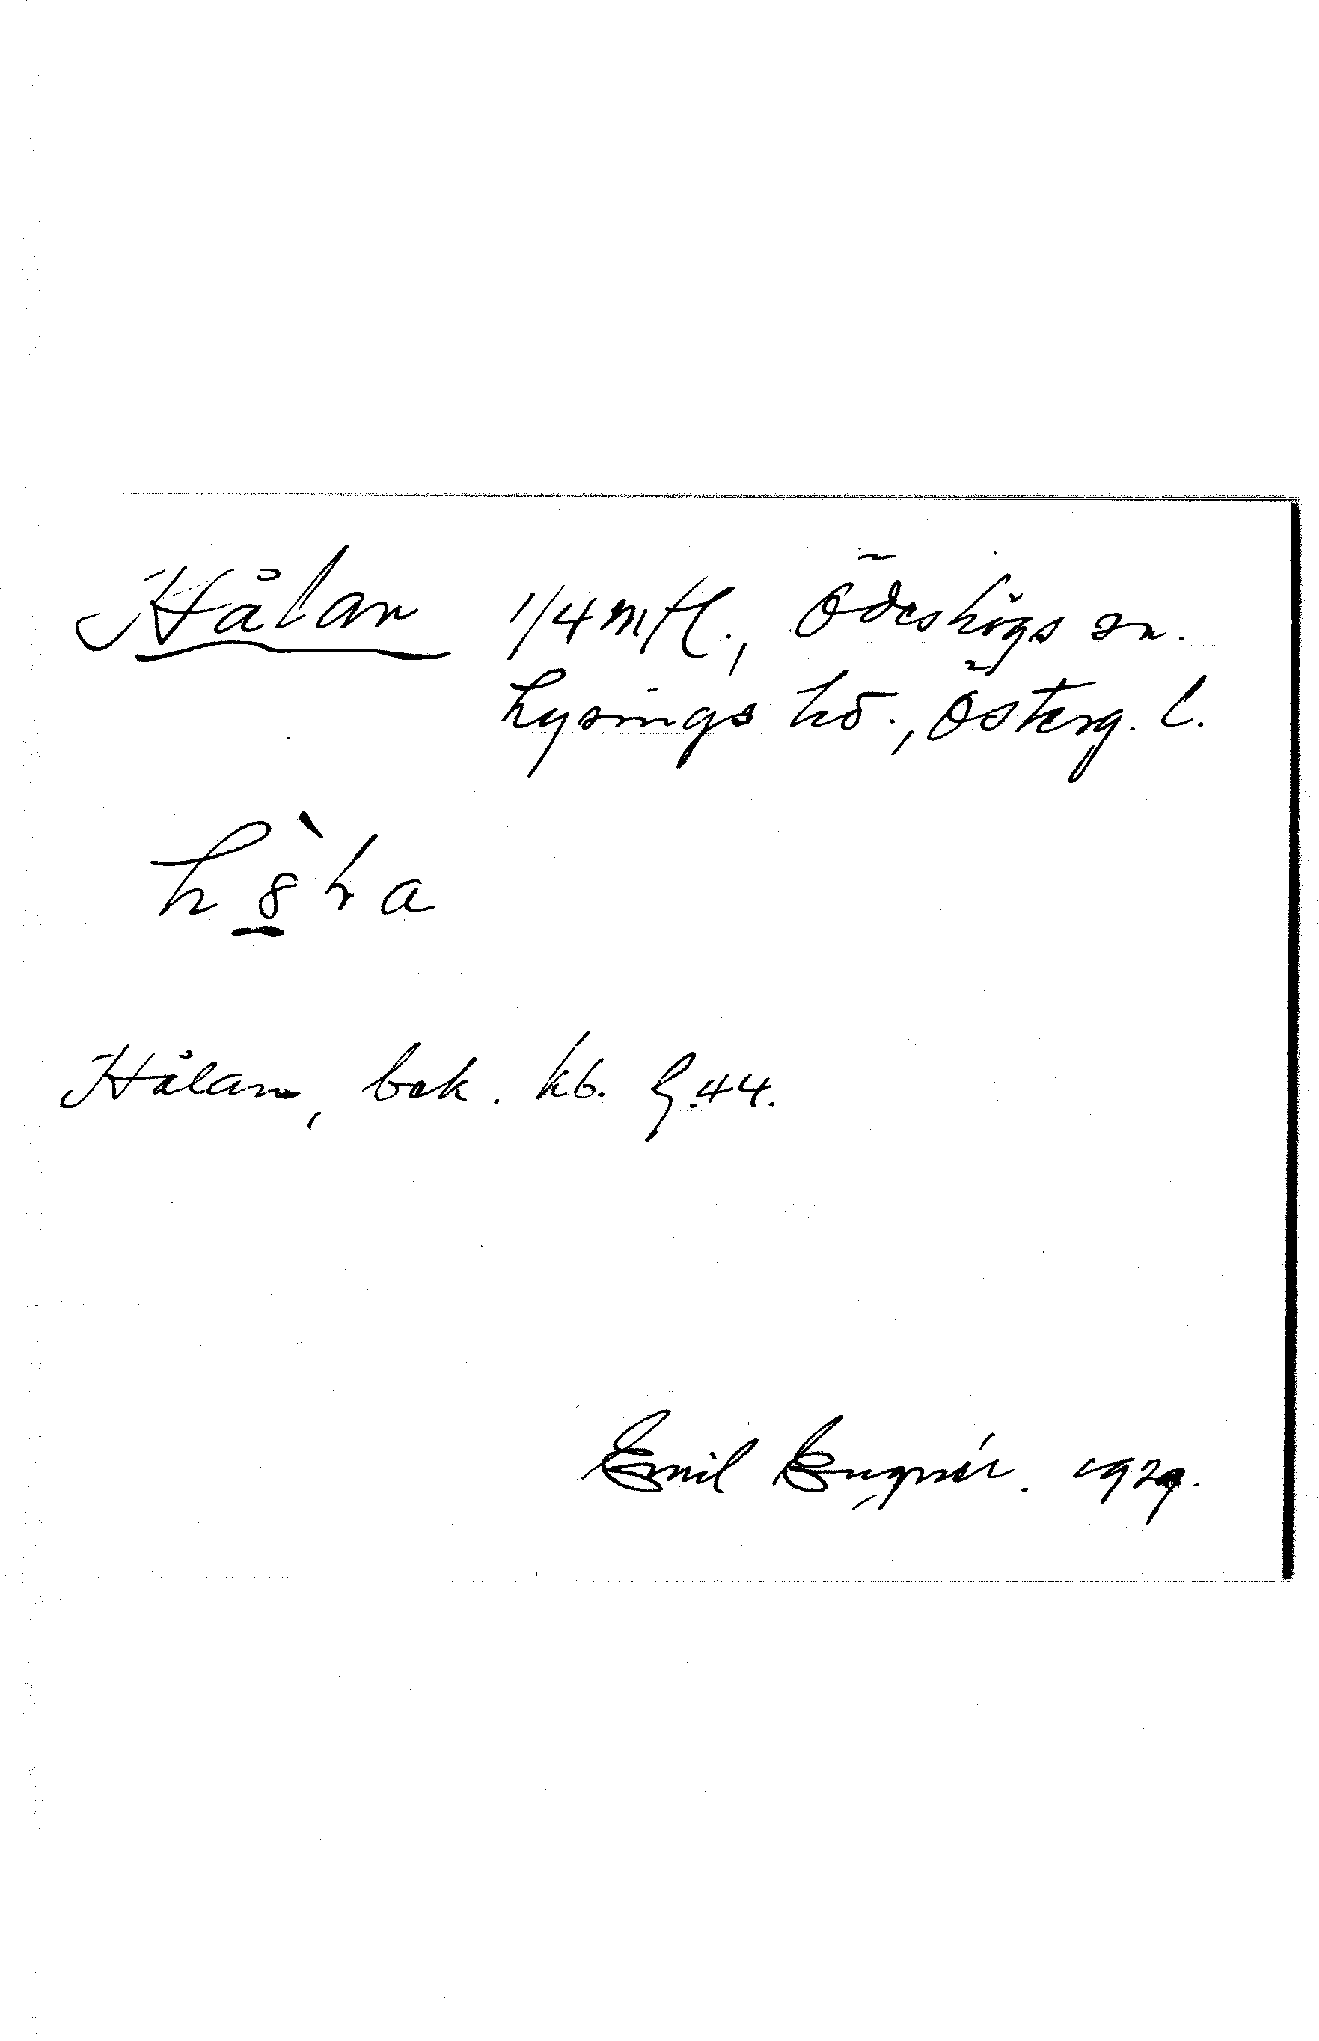 Hålan 1/4 mtl., Ödeshögs sn.
Lysings hd., Österg. l.
Hålan, bek. kb. G.44.
Emil Engnér. 1929.